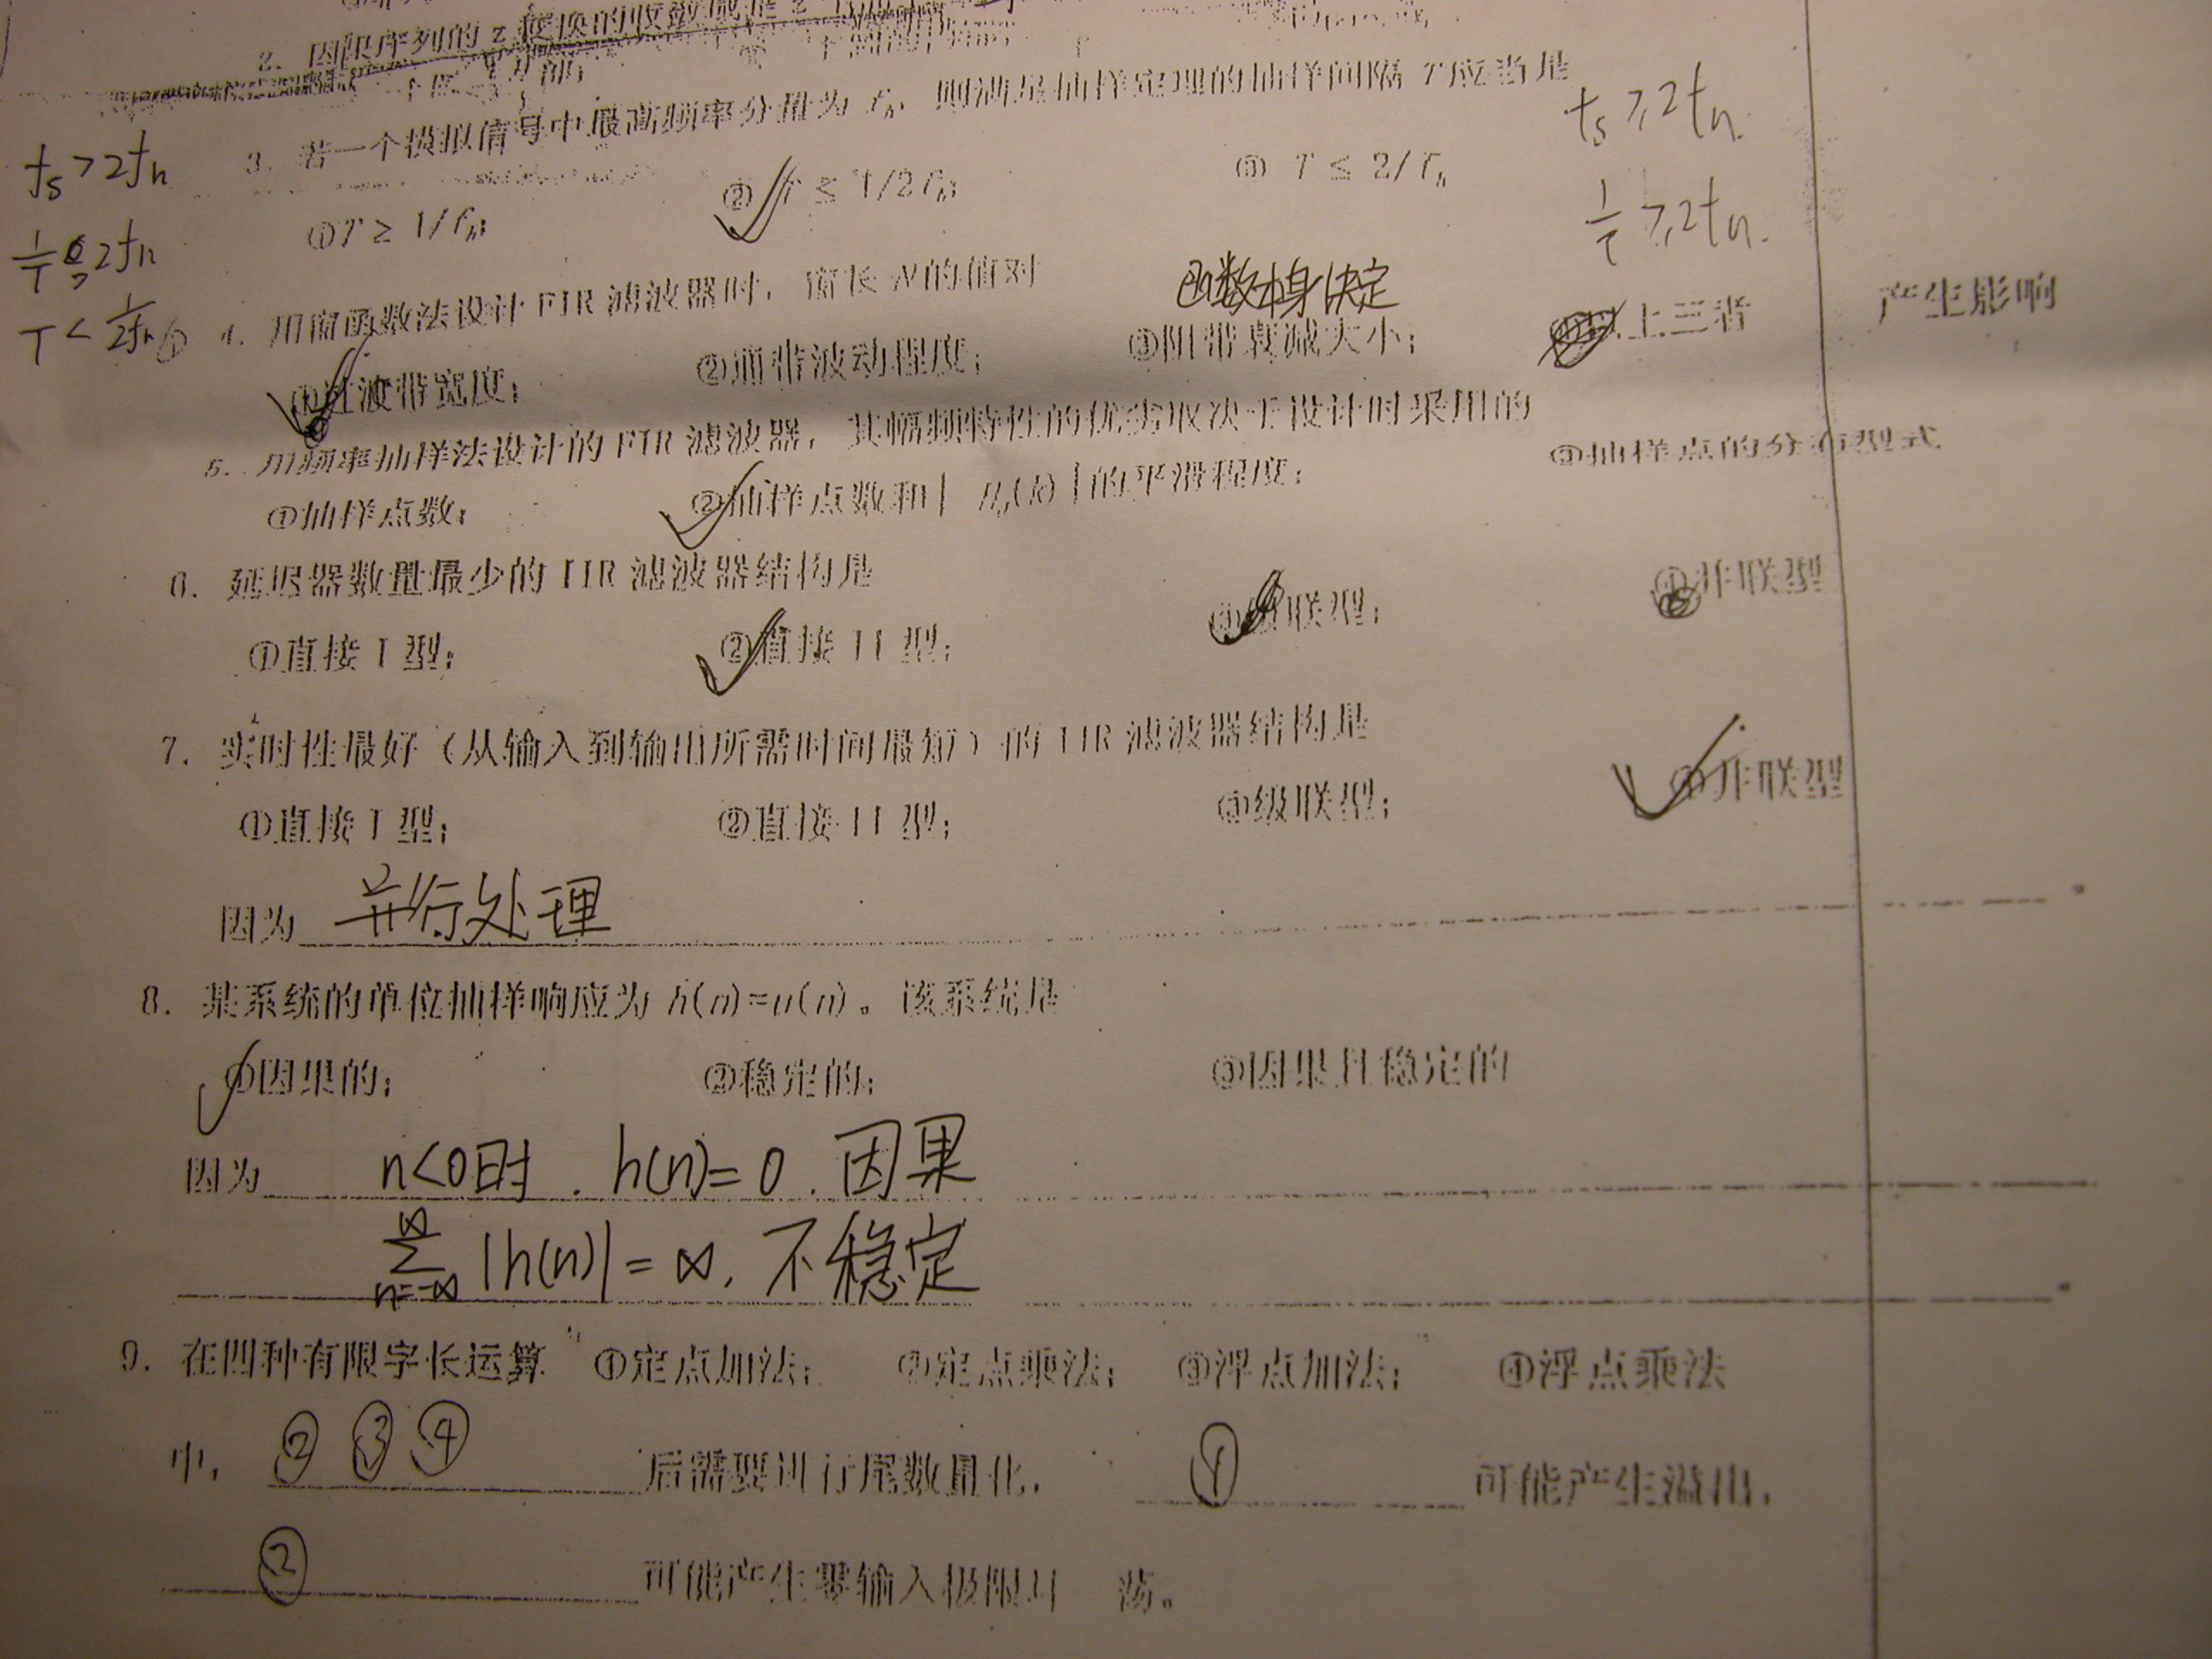 2. 因限序列的 z 变换的收敛域是 z
3. 若一个模拟信号中最高频率分量为 fₕ，则满足抽样定理的抽样间隔 T应当是
fs>2fh
fs≥2fh.
①T ≥ 1/fₕ； ②T ≤ 1/2fₕ； ③ T ≤ 2/fₕ
1/T > 2fh
1/T ≥2fh.
T < 1/2fh
4. 用窗函数法设计 FIR 滤波器时，窗长 N的值对
函数本身决定
①过渡带宽度； ②通带波动程度； ③阻带衰减大小； 以上三者 产生影响
5. 用频率抽样法设计的 FIR 滤波器，其幅频特性的优劣取决于设计时采用的
①抽样点数； ②抽样点数和| Hd(k) |的平滑程度； ③抽样点的分布型式.
6. 延迟器数量最少的 IIR 滤波器结构是
①直接 I 型； ②直接 II 型； ③级联型； ④并联型
7. 实时性最好（从输入到输出所需时间最短）的 IIR 滤波器结构是
①直接 I 型； ②直接 II 型； ③级联型； ④并联型
因为 并行处理
8. 某系统的单位抽样响应为 h(n)=u(n)。该系统是
①因果的； ②稳定的； ③因果且稳定的
因为 n<0时. h(n)=0. 因果
∑ₙ₌₋∞^∞ |h(n)| = ∞. 不稳定
9. 在四种有限字长运算 ①定点加法； ②定点乘法； ③浮点加法； ④浮点乘法
中， ② ③ ④ 后需要进行尾数量化， ① 可能产生溢出，
② 可能产生零输入极限 荡。